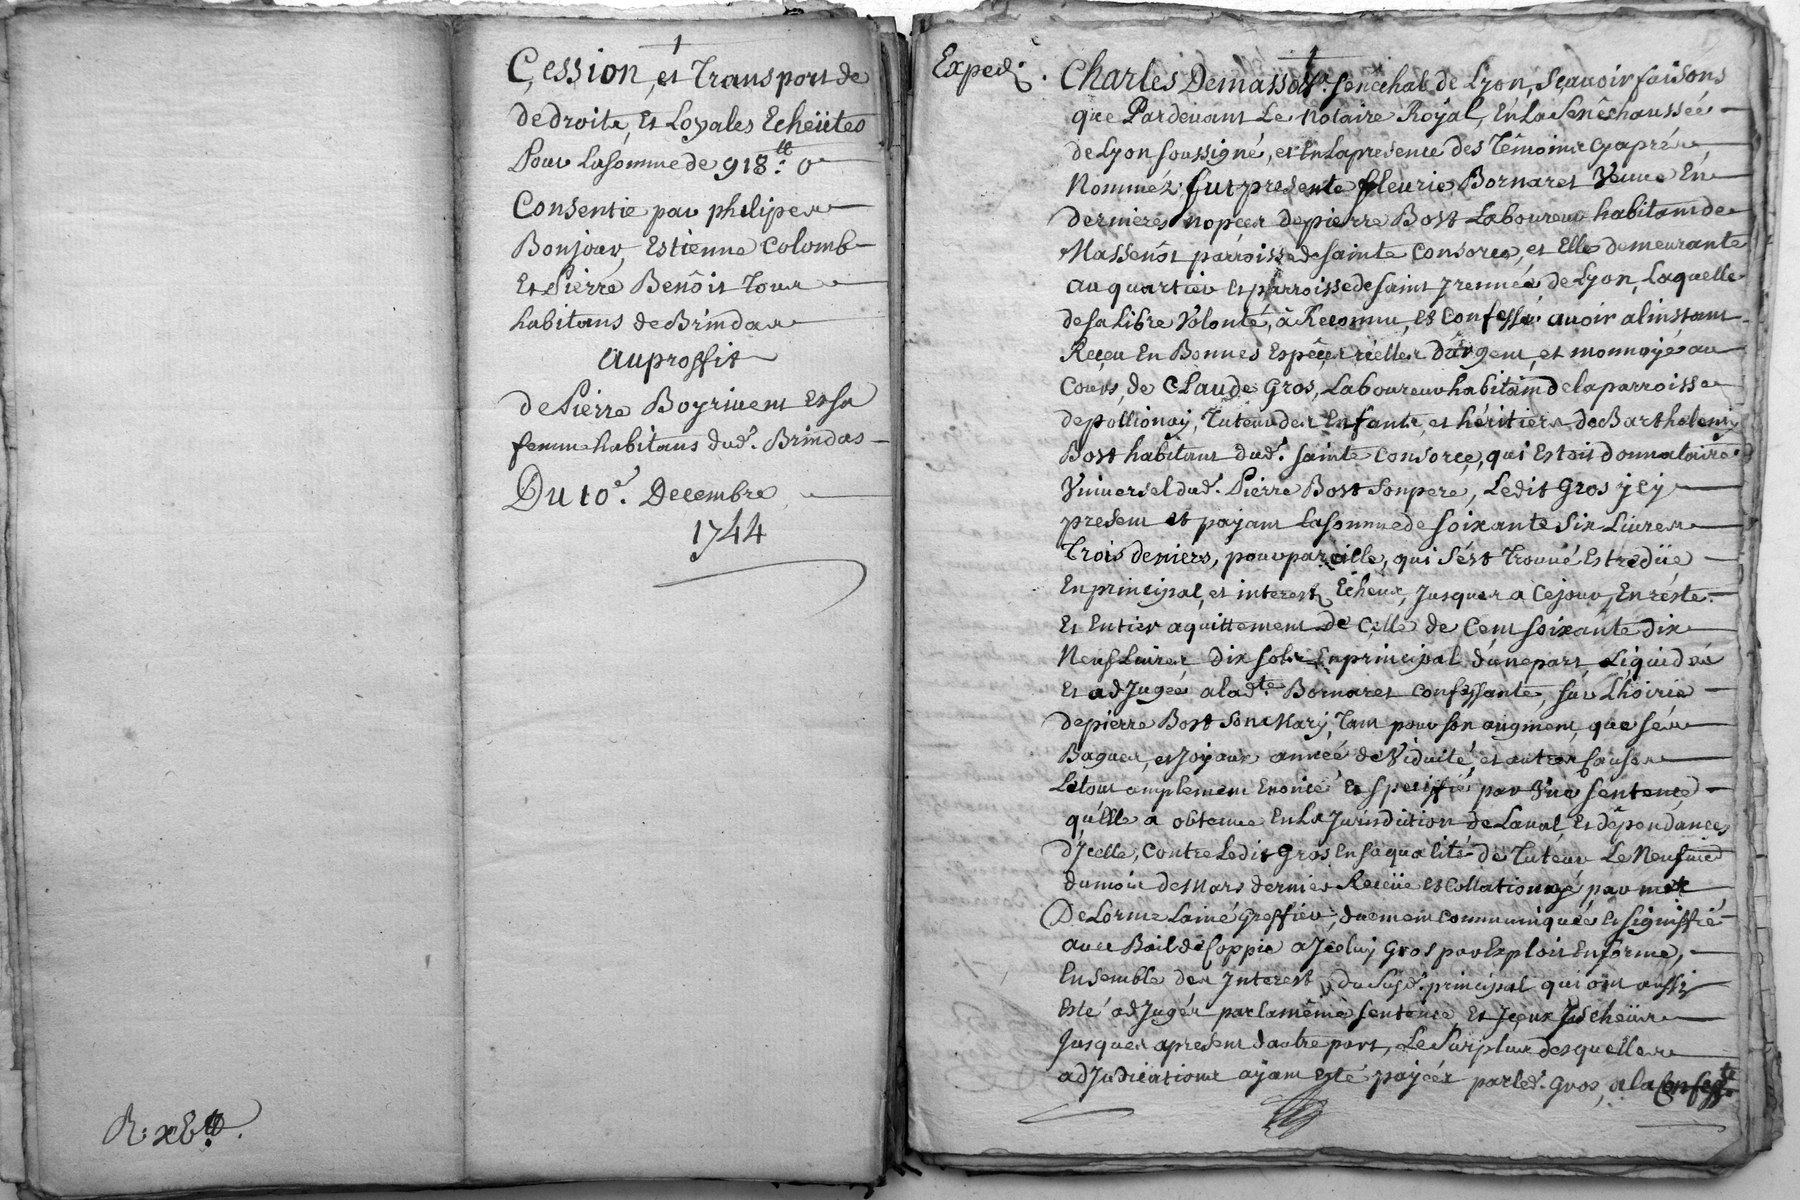 Cession, et Transport de
de droits, Et Loyales Echeütes
Pour La somme de 918.tt 0
Consentie par philipes
Bonjour, Estienne Colomb
Et Pierre Benôit Tous
habitans de Brindas
Au proffit
de Pierre Boyrivent Et sa
femme habitans dud. Brindas
Du 10e. Decembre
1744
R: xbtt.
Exped.
Charles Demasso sr. senechal de Lyon, Sçavoir faisons
que Pardevant Le Notaire Royal, En La Senêchaussée
de Lyon soussigné, et En La presence des Têmoins cy aprés
Nommés fut presente fleurie Bornaret Veuve En
dernieres nopces de pierre Bost Laboureur habitant de
Massenôt parroisse de sainte Consorce, et Elle demeurante
au quartier Et parroisse de saint Jrennée de Lyon, Laquelle
de sa Libre Volonté, à Reconnu, et Confessé avoir a linstant
Reçeu En Bonnes Espêces réelles D'argent, et monnoye au
Cours, de CLaude Gros, Laboureur habitant de la parroisse
de pollionay, Tuteur des Enfants, et héritiers de Barthelemy
Bost habitant dud. sainte Consorce, qui Estoit Donnataire
Vniversel dud. Pierre Bost son pere, Ledit Gros ycy
present et payant La somme de soixante six Livres
Trois deniers, pour pareille, qui s'ést Trouvé Estre düe
En principal, et interest Echeus, Jusques a Cejour, En réste
Et Entier aquittement de Celle de Cent soixante dix
Neuf Livres dix sols En principal d'une part Liquidés
Et adJugés a lad.te Bornaret Confessante, sur L'hoirie
de pierre Bost son Mary, Tant pour son augment, que ses
Bagues, et Joyaux année de Viduité, et autres Causes
Le tout amplement Enoncé Et specifié par Vne sentence
qu'Elle a obtenue En La Jurisdiction de Laval Et dépendances
d'Jcelle, Contre Ledit Gros En sa qualité de Tuteur Le Neufvie
du mois de Mars dernier Receüe et Collationné par me
De Lorme Lainé Greffier, duement Communiquée Et Signiffié
avec Bail de Coppie a Jceluy Gros par Exploit En forme,
Ensemble des Jnterest du Susd. principal qui ont aussi
Esté adJugés par la même sentence Et Jceux Escheüs
Jusques a present d'autre part, Le Surplus desquelles
adJudications ayant Esté payées par led. Gros, a la Confess.te